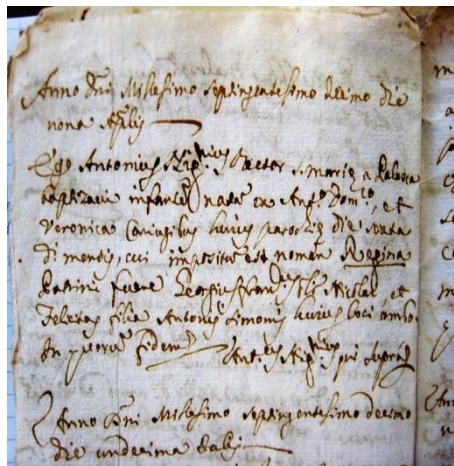 Anno Dni Millesimo septingentesimo decimo die
nona Aplis
Ego Antonius Rector S. Mariæ a
baptizavi infantem natā ex Antº Domco, et
Veronica Coniugibus huius parochiæ die sexta
di mensis, cui impositū est nomen Regina
Patrini fuere Nicolai, et
filia Antonij Simonis huius loci ambo.
In quorum fidem Antus qui supra
Anno Dni Millesimo septingentesimo decimo
die undecima